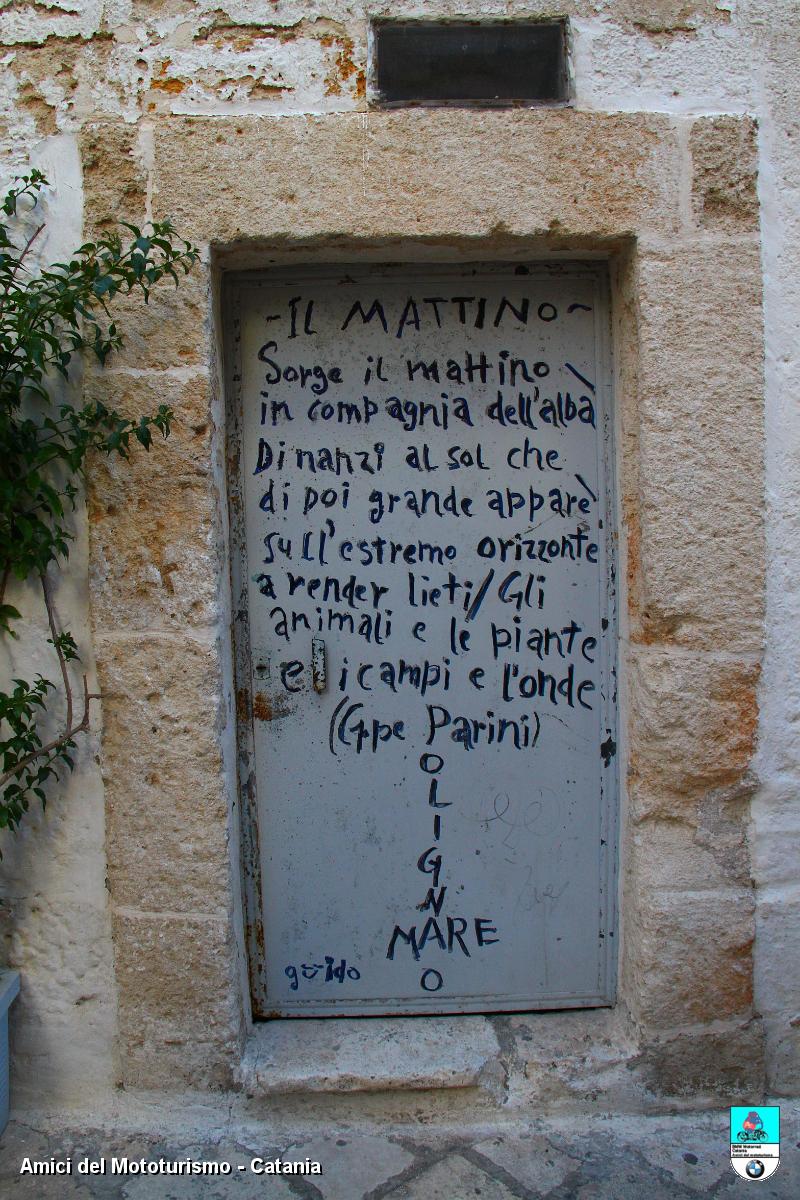 ~IL MATTINO~
Sorge il mattino
in compagnia dell'albà
Dinanzi al sol che
di poi grande apparè
sull'estremo orizzonte
a render lieti/Gli
animali e le piante
e i campi e l'onde
(Gpe Parini)
POLIGNANO
MARE
guido
Amici del Mototurismo - Catania
BMW Motorrad
Catania
Amici del mototurismo